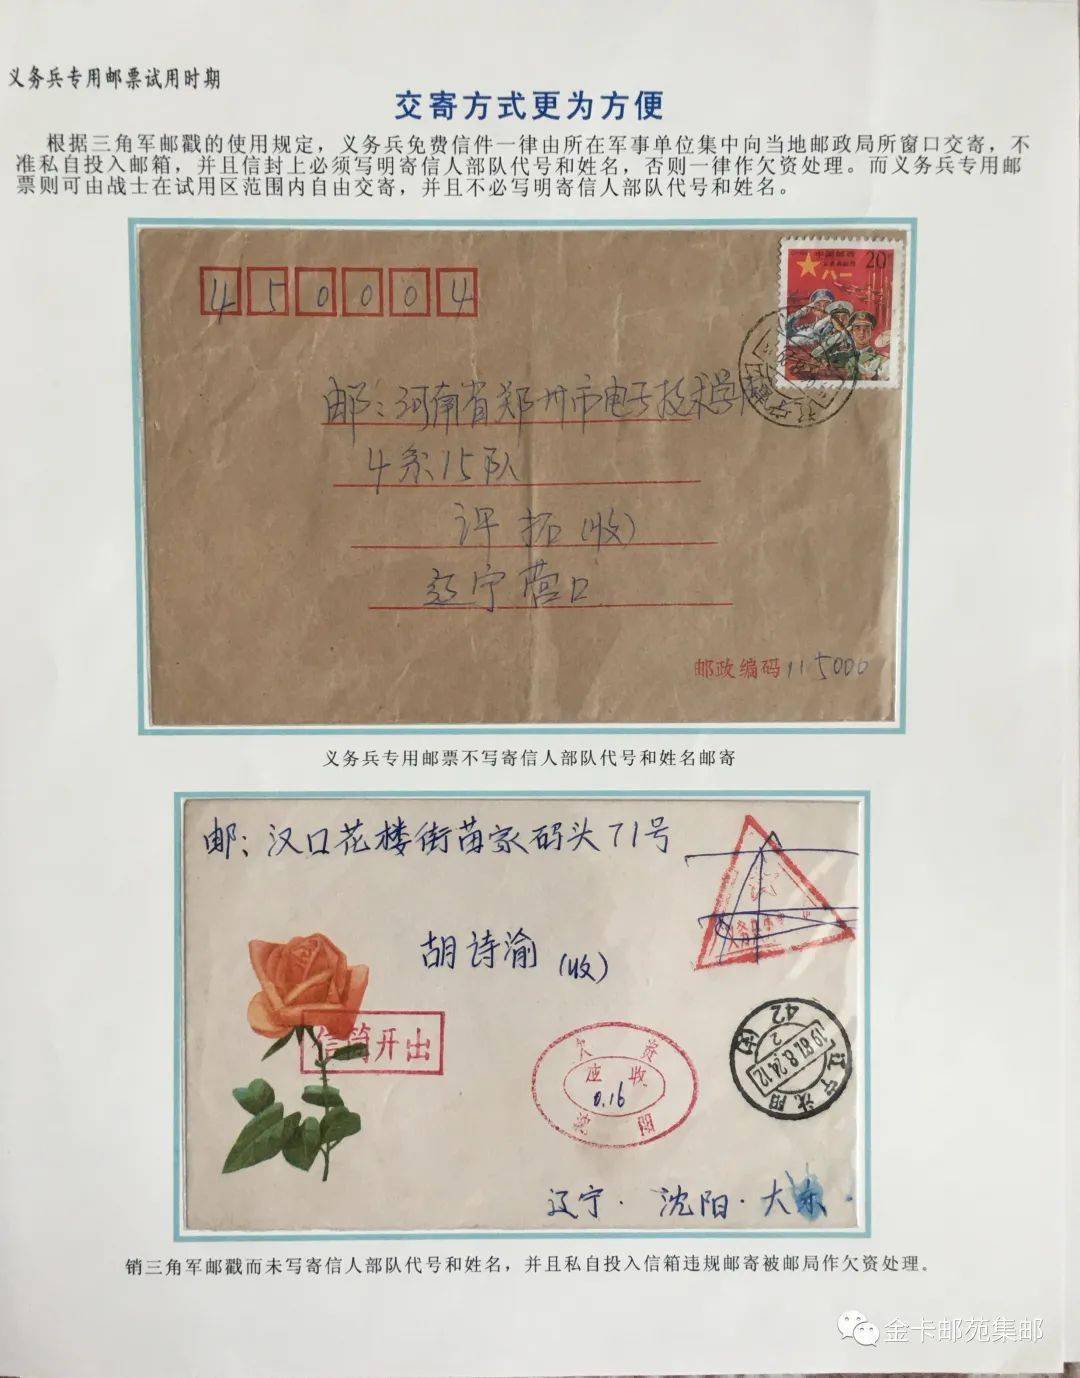 义务兵专用邮票试用时期
交寄方式更为方便
根据三角军邮戳的使用规定，义务兵免费信件一律由所在军事单位集中向当地邮政局所窗口交寄，不
准私自投入邮箱，并且信封上必须写明寄信人部队代号和姓名，否则一律作欠资处理。而义务兵专用邮
票则可由战士在试用区范围内自由交寄，并且不必写明寄信人部队代号和姓名。
450004
中国邮政
20
八一
邮：河南省郑州市电子技术学院
4系15队
许拓（收）
辽宁营口
邮政编码 115000
义务兵专用邮票不写寄信人部队代号和姓名邮寄
邮：汉口花楼街苗家码头71号
胡诗渝（收）
信筒开出
欠资
应收
0.16
沈阳
42
2
1981.8.24.12
辽宁沈阳
辽宁·沈阳·大东
销三角军邮戳而未写寄信人部队代号和姓名，并且私自投入信箱违规邮寄被邮局作欠资处理。
金卡邮苑集邮